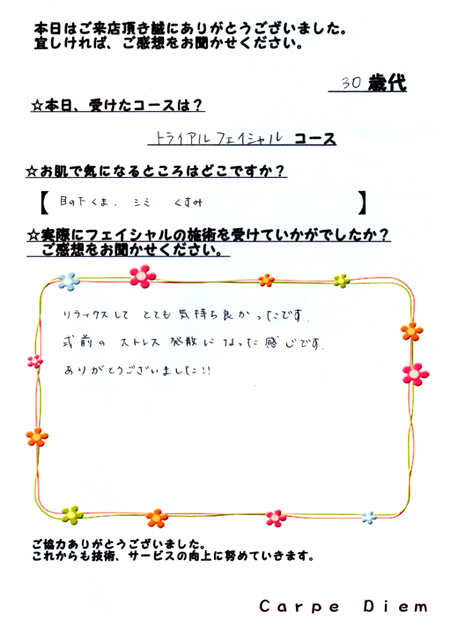 本日はご来店頂き誠にありがとうございました。
宜しければ、ご感想をお聞かせください。
30 歳代
☆本日、受けたコースは？
トライアルフェイシャル コース
☆お肌で気になるところはどこですか？
【 目の下くま、 シミ くすみ 】
☆実際にフェイシャルの施術を受けていかがでしたか？
ご感想をお聞かせください。
リラックスして とても 気持ち良かったです。
式前の ストレス 発散に なった 感じです。
ありがとうございました!!
ご協力ありがとうございました。
これからも技術、サービスの向上に努めていきます。
Carpe Diem